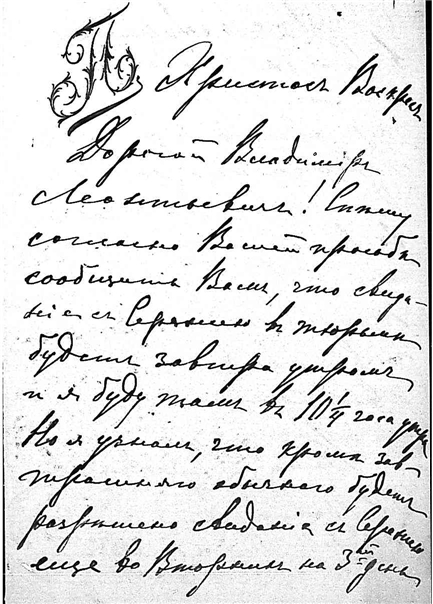 П
Христосъ Воскресъ
Дорогой Владиміръ
Леонтьевичъ! Спѣшу
согласно Вашей просьбѣ
сообщить Вамъ, что свида-
ніе съ въ тюрьмѣ
будетъ завтра утромъ
и я буду тамъ въ 10½ часа утра
Но я узналъ, что кромѣ зав-
трашняго обычнаго будетъ
разрѣшено свиданіе съ
еще во Вторникъ на 3ій день